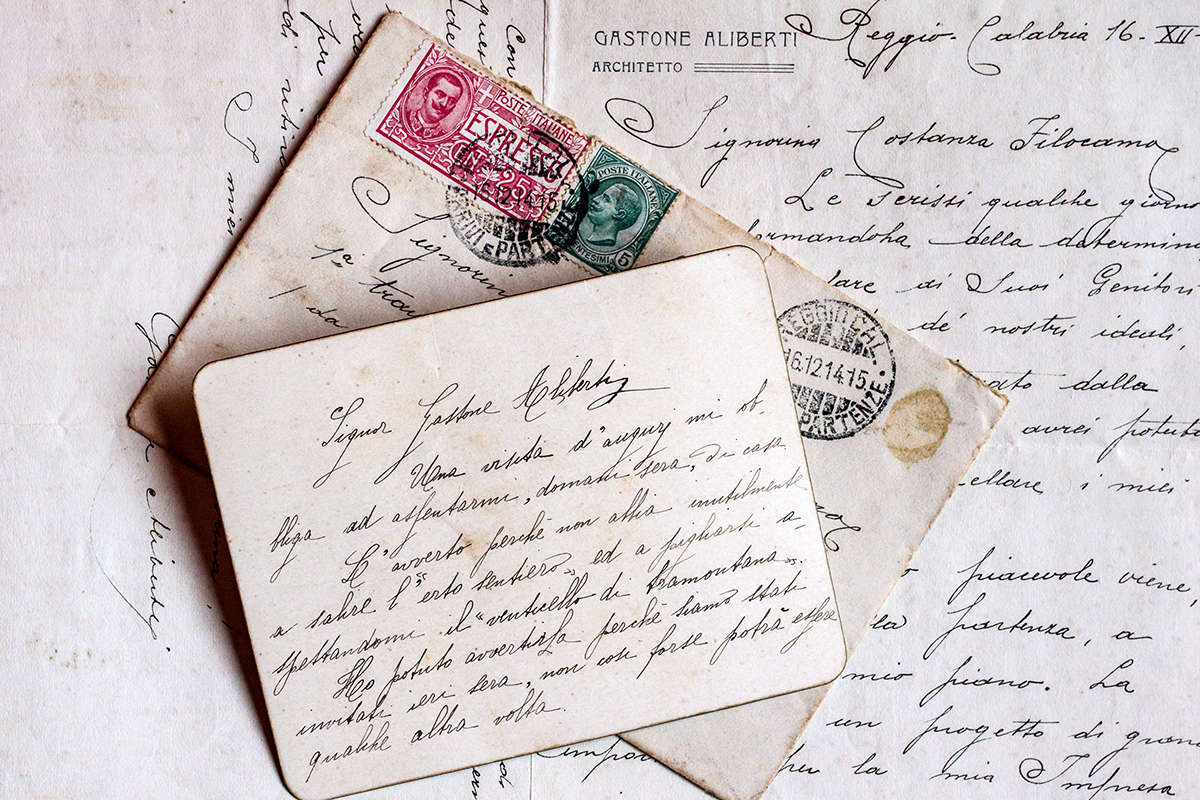 Con
quest
de
per
di ritira
I miei
GASTONE ALIBERTI
ARCHITETTO
Reggio-Calabria 16-XII-
Signorina Costanza Filocamo
Le scrissi qualche giorn
formandoha della determin
lare di Suoi Genitori
de' nostri ideali,
ato dalla
avrei potuto
cellare i miei
piacevole viene,
la partenza, a
mio piano. La
un progetto di grand
per la mia Impresa
POSTE ITALIANE
ESPRESSO
CENT. 25
POSTE ITALIANE
CENTESIMI 5
15.12.14.15.
PARTENZE
REGGIO CAL
16.12.14.15.
PARTENZE
Signorin
1ª trav
da
Signor Gastone Aliberti
Una visita d'augurj mi ob-
bliga ad assentarmi, domani sera, di casa
L'avverto perché non abbia inutilmente
a salire l'"erto sentiero" ed a pigliarsi a-
spettandomi il "venticello di tramontana".
Ho potuto avvertirla perché siamo stati
invitati ieri sera, non così forse potrà essere
qualche altra volta.